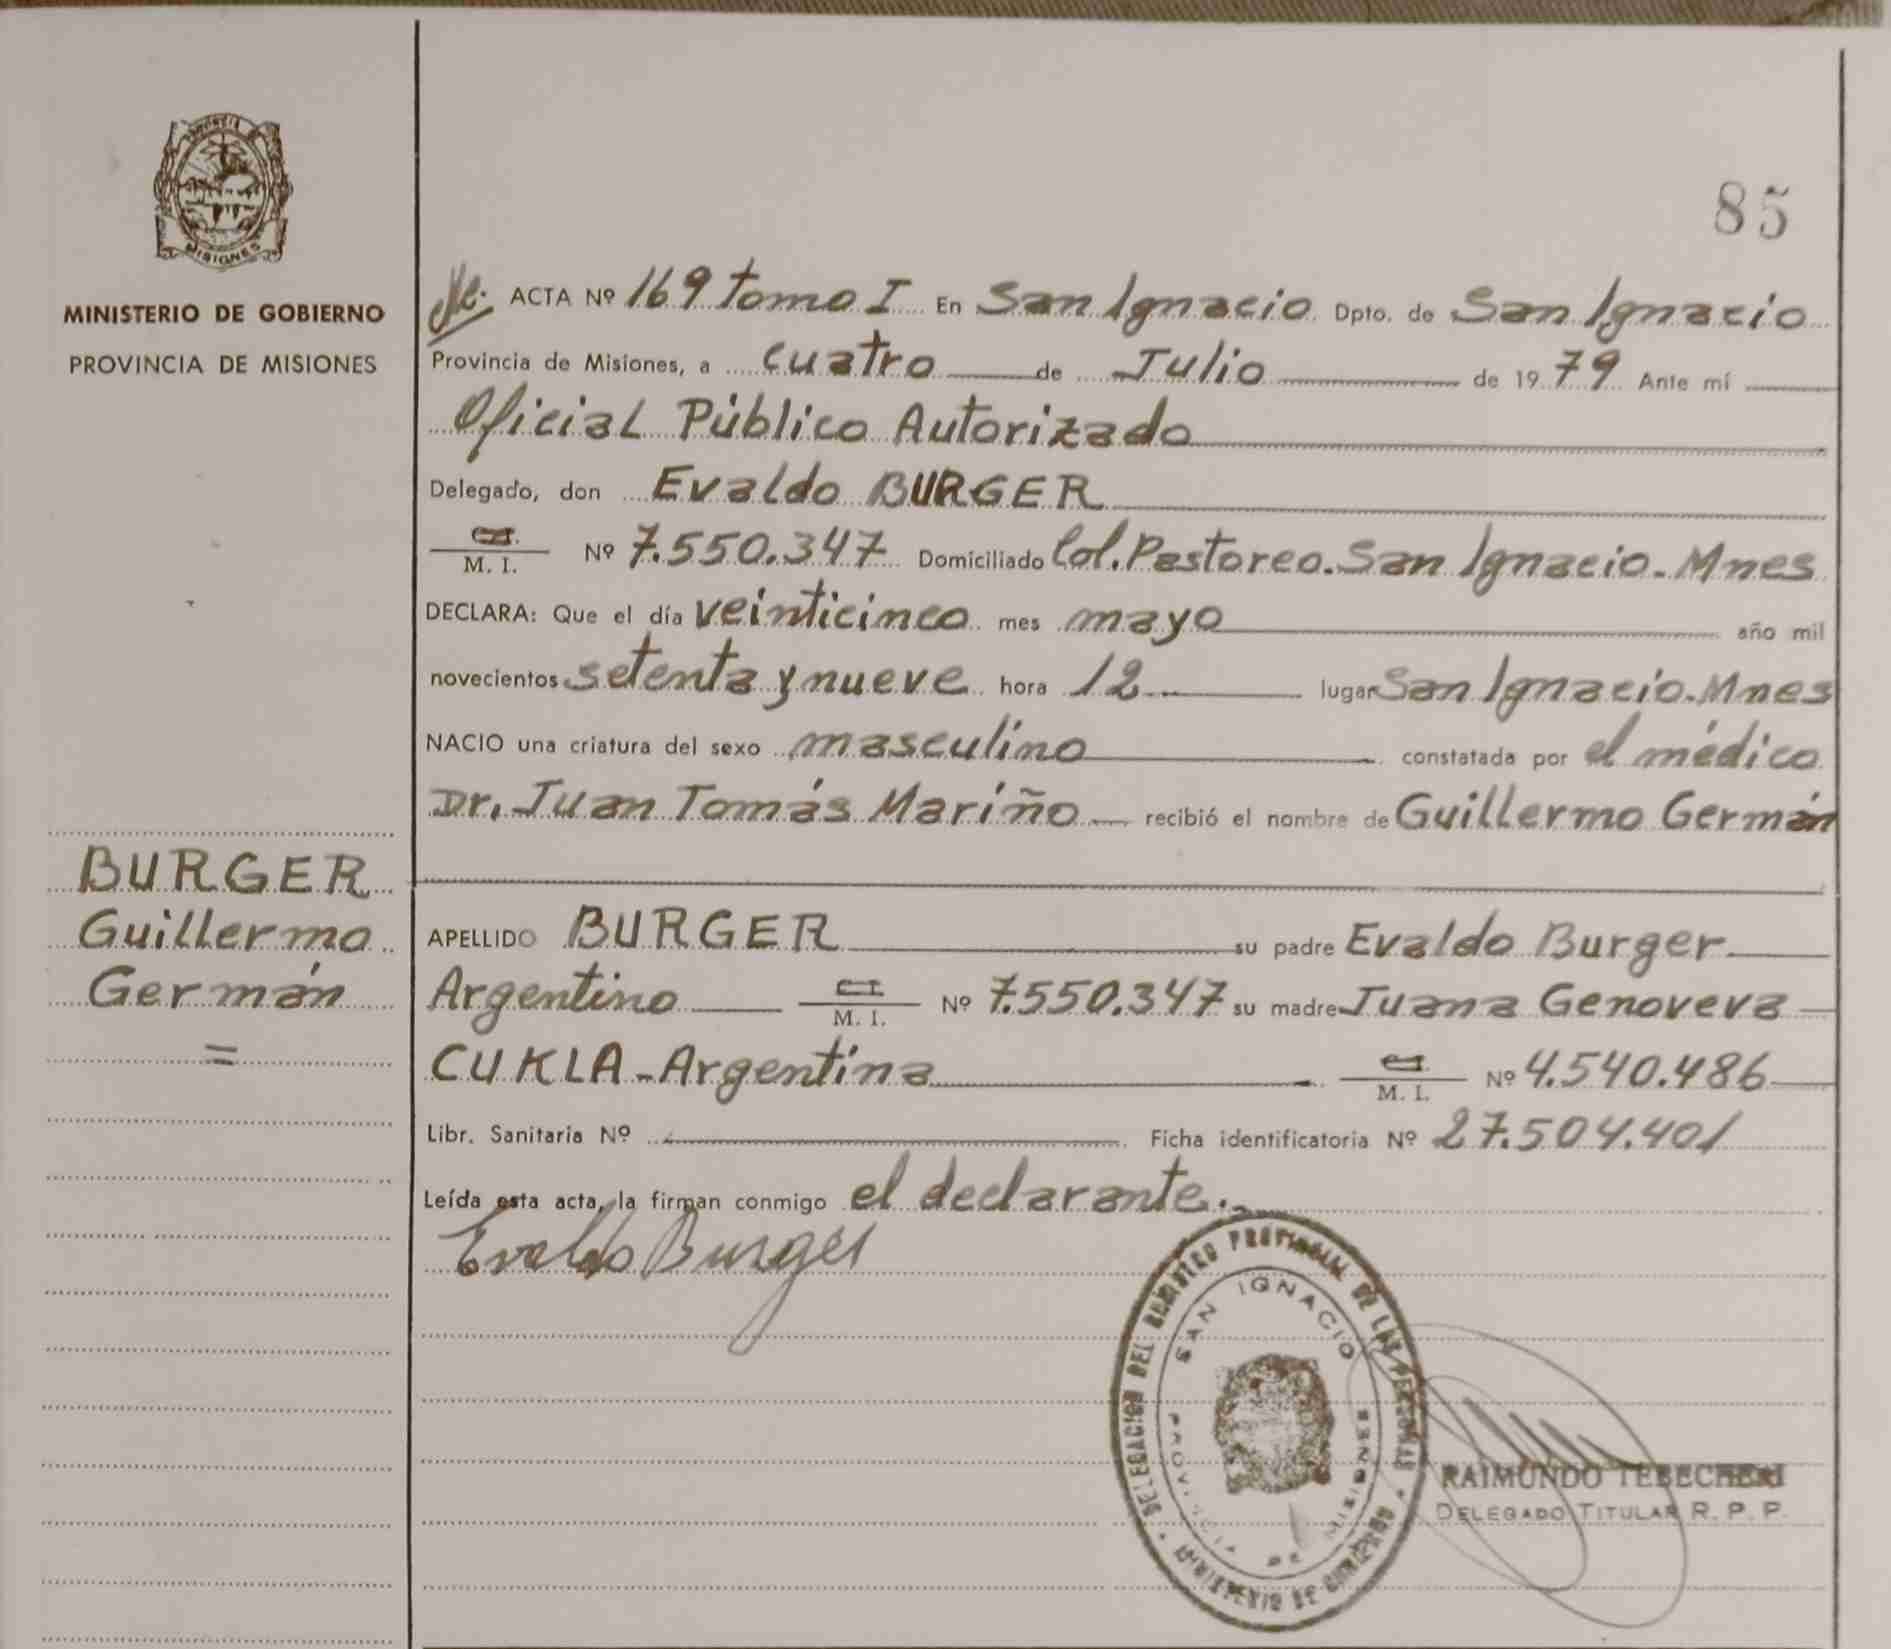 MISIONES
MINISTERIO DE GOBIERNO
PROVINCIA DE MISIONES
BURGER
Guillermo
Germán
=
85
ACTA Nº 169 tomo I En San Ignacio Dpto. de San Ignacio
Provincia de Misiones, a cuatro de Julio de 1979 Ante mí
Oficial Público Autorizado
Delegado, don Evaldo BURGER
C.I.
M. I. Nº 7.550.347 Domiciliado Col. Pastoreo. San Ignacio. Mnes
DECLARA: Que el día veinticinco mes mayo año mil
novecientos setenta y nueve hora 12 lugar San Ignacio. Mnes
NACIO una criatura del sexo masculino constatada por el médico
Dr. Juan Tomás Mariño recibió el nombre de Guillermo Germán
APELLIDO BURGER su padre Evaldo Burger
Argentino C.I. M. I. Nº 7.550.347 su madre Juana Genoveva
CUKLA - Argentina C.I. M. I. Nº 4.540.486
Libr. Sanitaria Nº Ficha identificatoria Nº 27.504.401
Leída esta acta, la firman conmigo el declarante.
Evaldo Burger
DELEGACION DEL REGISTRO PROVINCIAL DE LAS PERSONAS
MINISTERIO DE GOBIERNO
SAN IGNACIO
PROVINCIA DE MISIONES
RAIMUNDO TEBECHERI
DELEGADO TITULAR R. P. P.